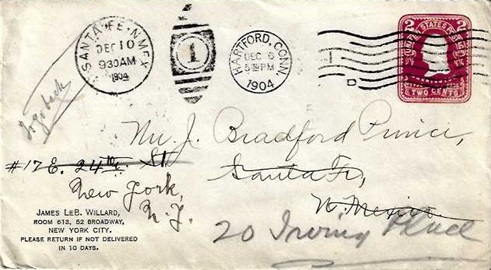 SANTA FE. N. MEX.
DEC 10
930AM
1904
1
HARTFORD, CONN.
DEC 6
5 PM
1904
2 UNITED STATES 2
TWO CENTS
Mr J. Bradford Prince,
#17 E. 24th St
Santa Fe,
New York,
N. Mexico
N. Y.
20 Irving Place
JAMES LEB. WILLARD,
ROOM 613, 52 BROADWAY,
NEW YORK CITY.
PLEASE RETURN IF NOT DELIVERED
IN 10 DAYS.